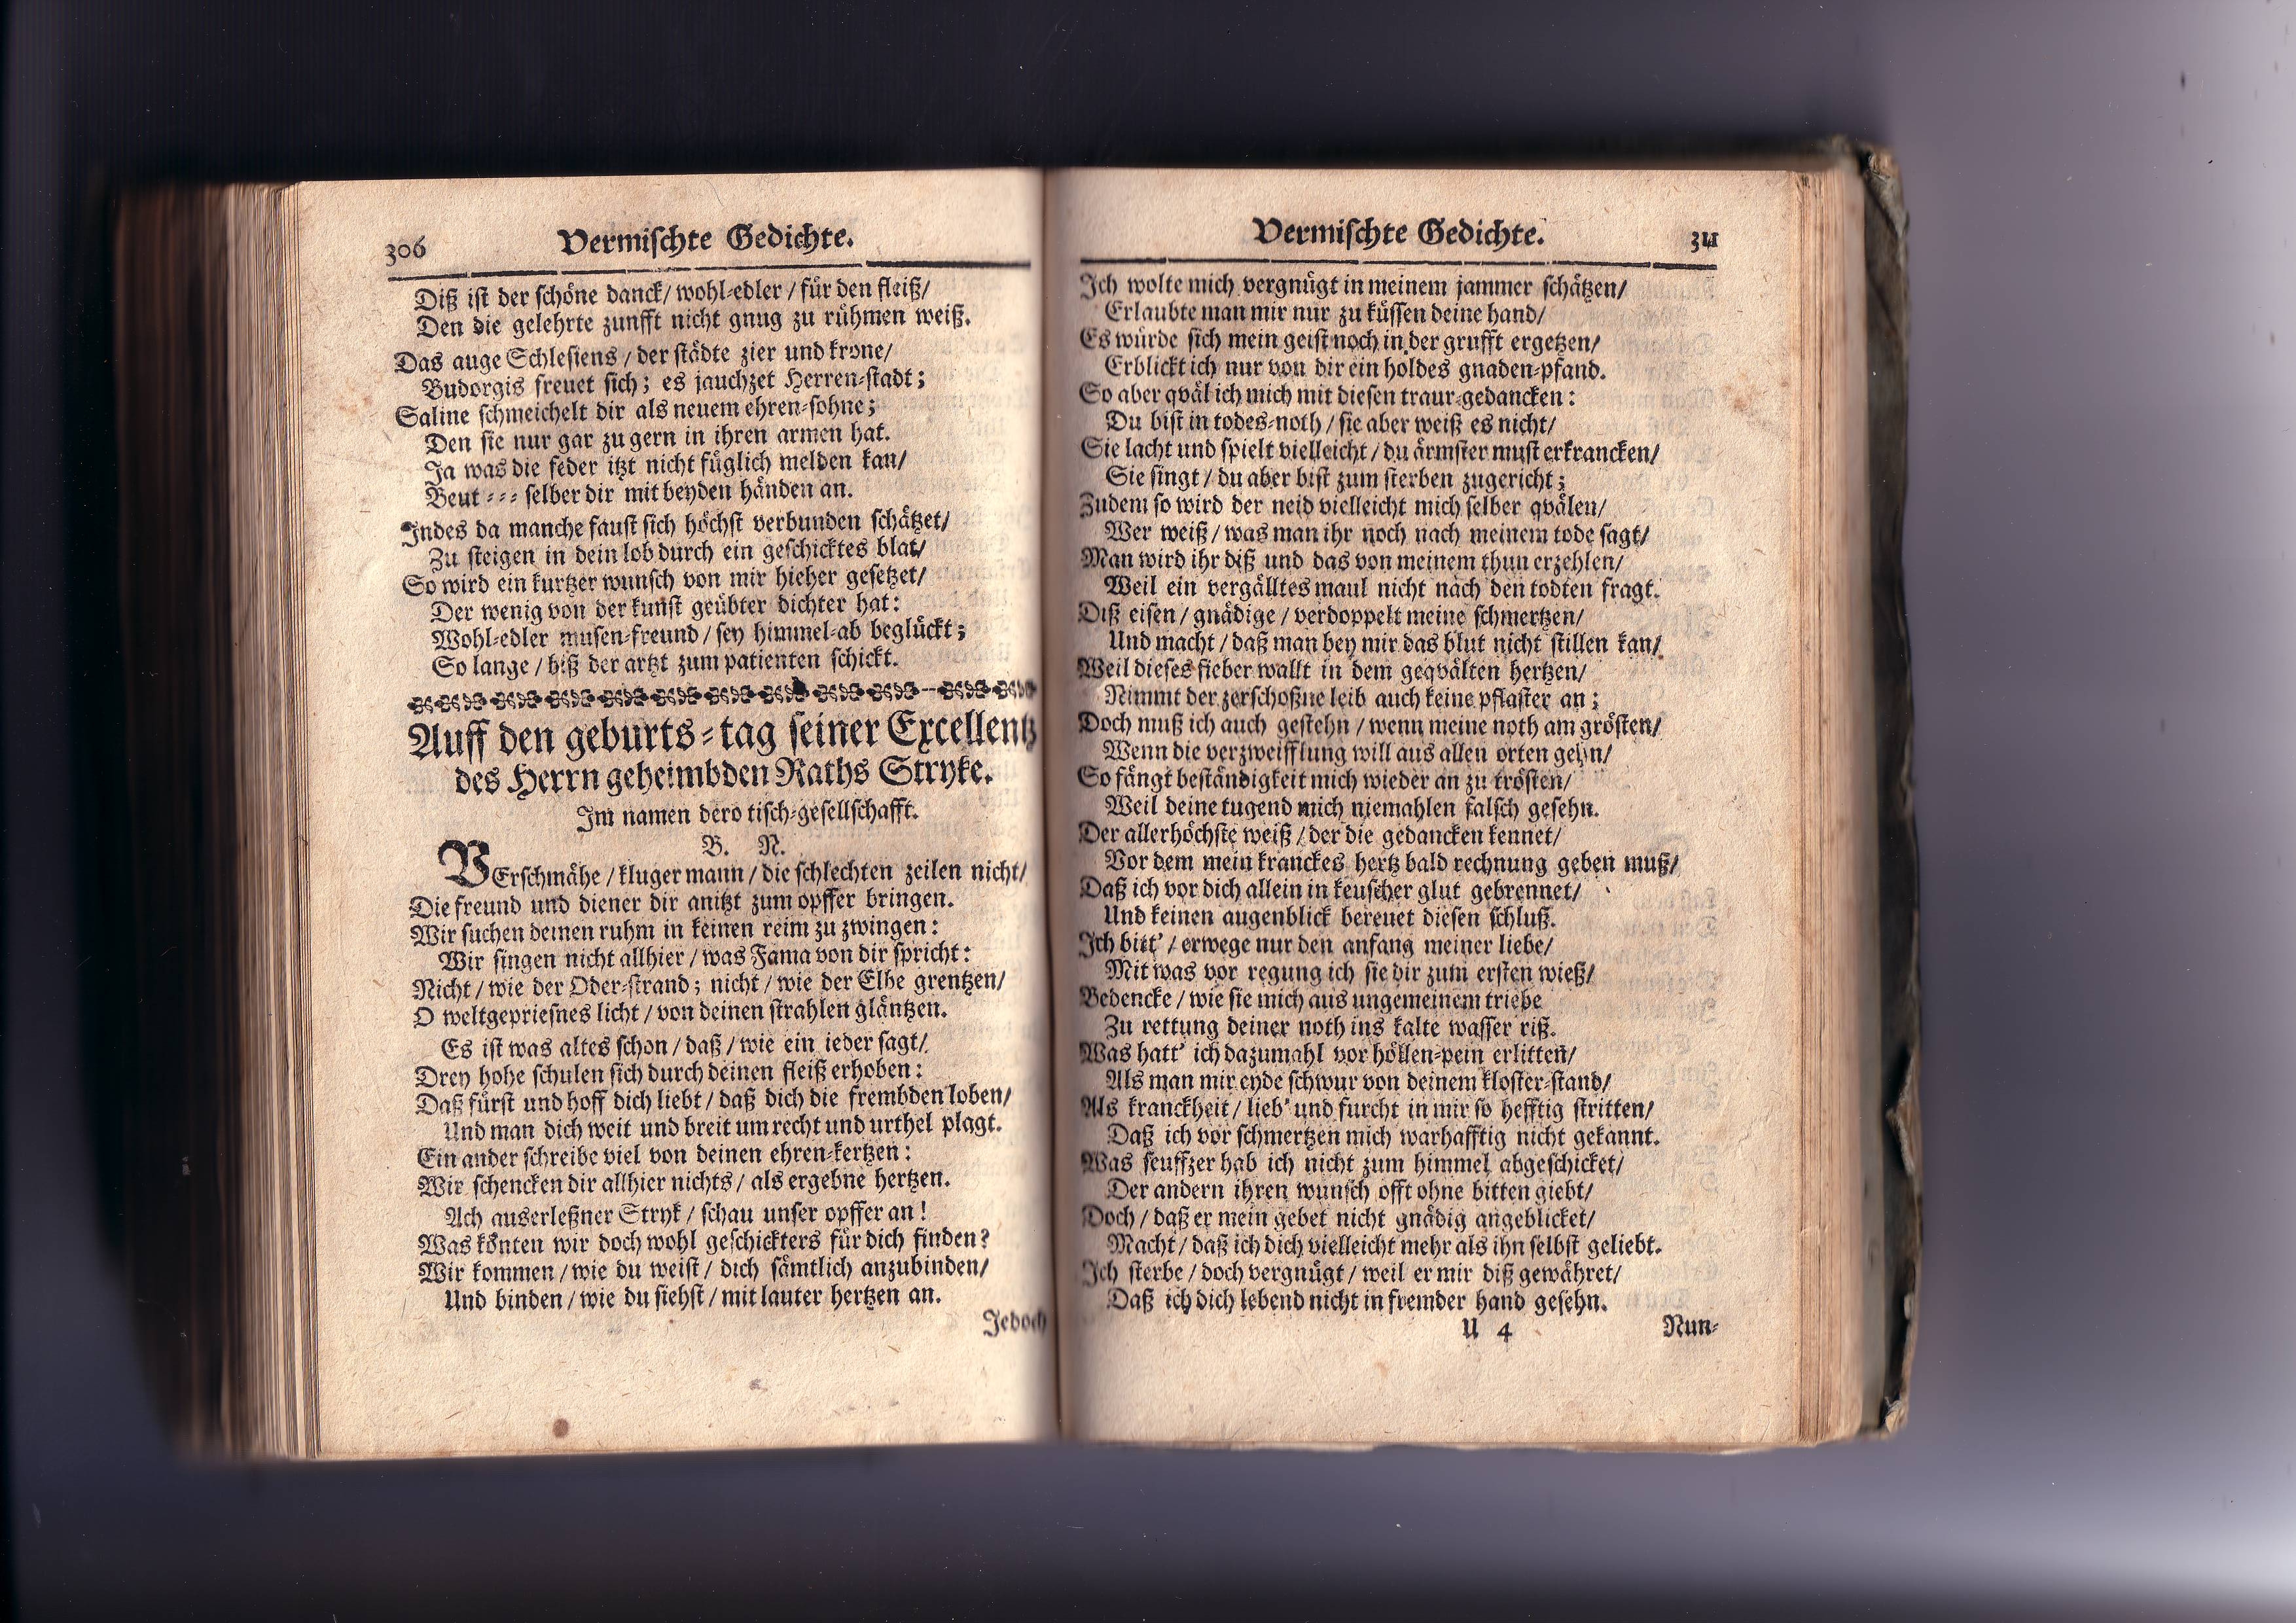 306 Vermischte Gedichte.
Diß ist der schöne danck/ wohl-edler / für den fleiß/
Den die gelehrte zunfft nicht gnug zu rühmen weiß.
Das auge Schlesiens / der städte zier und krone/
Budorgis freuet sich; es jauchzet Herren-stadt;
Saline schmeichelt dir als neuem ehren-sohne;
Den sie nur gar zu gern in ihren armen hat.
Ja was die feder itzt nicht füglich melden kan/
Beut - - - selber dir mit beyden händen an.
Indes da manche faust sich höchst verbunden schätzet/
Zu steigen in dein lob durch ein geschicktes blat/
So wird ein kurtzer wunsch von mir hieher gesetzet/
Der wenig von der kunst geübter dichter hat:
Wohl-edler musen-freund / sey himmel-ab beglückt;
So lange / biß der artzt zum patienten schickt.
Auff den geburts-tag seiner Excellentz
des Herrn geheimbden Raths Stryke.
Im namen dero tisch-gesellschafft.
B. N.
VErschmähe / kluger mann / die schlechten zeilen nicht/
Die freund und diener dir anitzt zum opffer bringen.
Wir suchen deinen ruhm in keinen reim zu zwingen:
Wir singen nicht allhier / was Fama von dir spricht:
Nicht / wie der Oder-strand; nicht / wie der Elbe grentzen/
O weltgepriesnes licht / von deinen strahlen gläntzen.
Es ist was altes schon / daß / wie ein ieder sagt/
Drey hohe schulen sich durch deinen fleiß erhoben:
Daß fürst und hoff dich liebt / daß dich die frembden loben/
Und man dich weit und breit um recht und urthel plagt.
Ein ander schreibe viel von deinen ehren-kertzen:
Wir schencken dir allhier nichts / als ergebne hertzen.
Ach auserleßner Stryk / schau unser opffer an!
Was könten wir doch wohl geschickters für dich finden?
Wir kommen / wie du weist / dich sämtlich anzubinden/
Und binden / wie du siehst / mit lauter hertzen an.
Jedoch
Vermischte Gedichte. 311
Ich wolte mich vergnügt in meinem jammer schätzen/
Erlaubte man mir nur zu küssen deine hand/
Es würde sich mein geist noch in der grufft ergetzen/
Erblickt ich nur von dir ein holdes gnaden-pfand.
So aber qväl ich mich mit diesen traur-gedancken:
Du bist in todes-noth / sie aber weiß es nicht/
Sie lacht und spielt vielleicht / du ärmster must erkrancken/
Sie singt / du aber bist zum sterben zugericht;
Zudem so wird der neid vielleicht mich selber qvälen/
Wer weiß / was man ihr noch nach meinem tode sagt/
Man wird ihr diß und das von meinem thun erzehlen/
Weil ein vergälltes maul nicht nach den todten fragt.
Diß eisen / gnädige / verdoppelt meine schmertzen/
Und macht / daß man bey mir das blut nicht stillen kan/
Weil dieses fieber wallt in dem geqvälten hertzen/
Nimmt der zerschoßne leib auch keine pflaster an;
Doch muß ich auch gestehn / wenn meine noth am grösten/
Wenn die verzweifflung will aus allen orten gehn/
So fängt beständigkeit mich wieder an zu trösten/
Weil deine tugend mich niemahlen falsch gesehn.
Der allerhöchste weiß / der die gedancken kennet/
Vor dem mein kranckes hertz bald rechnung geben muß/
Daß ich vor dich allein in keuscher glut gebrennet/
Und keinen augenblick bereuet diesen schluß.
Ich bitt' / erwege nur den anfang meiner liebe/
Mit was vor regung ich sie dir zum ersten wieß/
Bedencke / wie sie mich aus ungemeinem triebe
Zu rettung deiner noth ins kalte wasser riß.
Was hatt' ich dazumahl vor höllen-pein erlitten/
Als man mir eyde schwur von deinem kloster-stand/
Als kranckheit / lieb' und furcht in mir so hefftig stritten/
Daß ich vor schmertzen mich warhafftig nicht gekannt.
Was seuffzer hab ich nicht zum himmel abgeschicket/
Der andern ihren wunsch offt ohne bitten giebt/
Doch / daß er mein gebet nicht gnädig angeblicket/
Macht / daß ich dich vielleicht mehr als ihn selbst geliebt.
Ich sterbe / doch vergnügt / weil er mir diß gewähret/
Daß ich dich lebend nicht in fremder hand gesehn.
U 4 Nun-